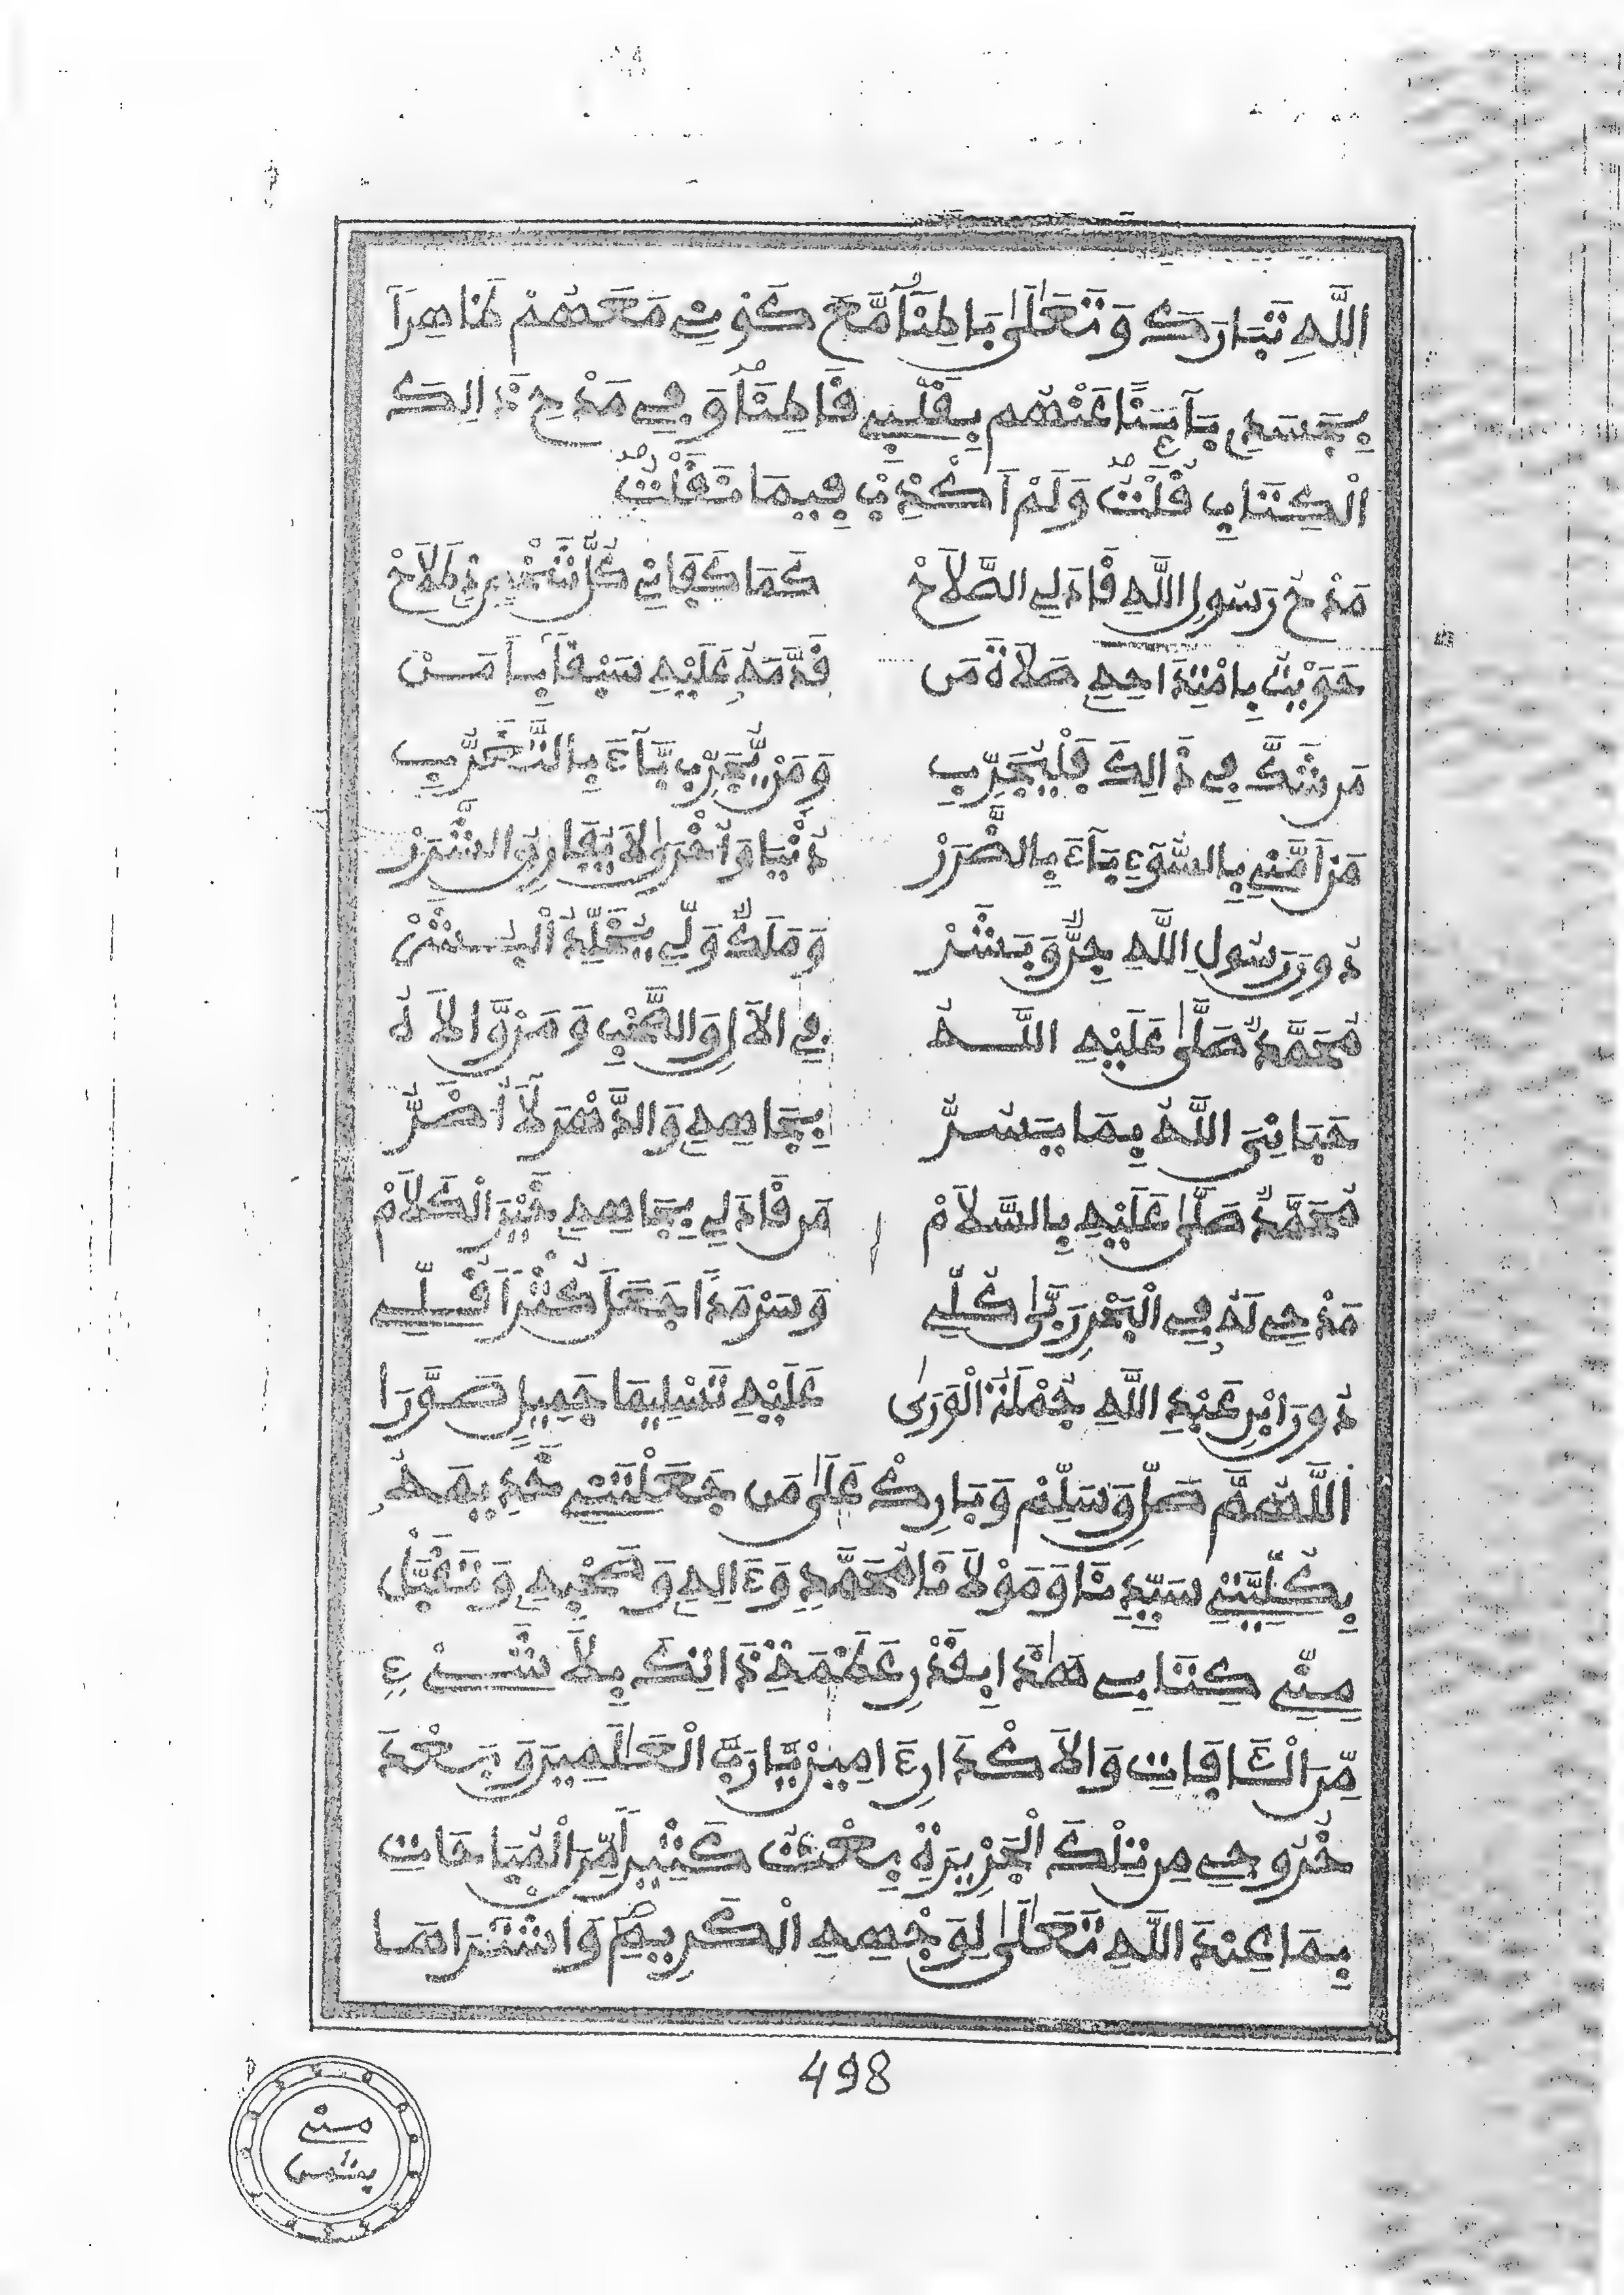 اللَّهِ تَبَارَكَ وَتَعَالَىٰ بَاطِنًا مَّعَ كَوْنِي مَعَهُمْ ظَاهِرًا
بِجَسَدِي بَآئِنًا عَنْهُم بِقَلْبِي قَاطِنًا وَفِي مَدْحِ ذَالِكَ
الْكِتَابِ قُلْتُ وَلَمْ أَكْذِبْ فِيمَا نَقَلْتُ
مَدْحُ رَسُولِ اللَّهِ قَادَ لِي الصَّلَاحْ كَمَا كَفَانِي كُلَّ شَخْصٍ ذِي طَلَاحْ
حَوَيْتُ بِامْتِدَاحِهِ صَلَاةَ مَن قَدَّمَهُ عَلَيْهِ سَبْقًا يَا مَنْ
مَن شَكَّ فِي ذَالِكَ فَلْيُجَرِّبِ وَمَن يُّجَرِّبْ بَآءَ بِالتَّخَرُّبِ
مَنْ أَمَّنِي بِالسُّوءِ بَآءَ بِالضَّرَرْ دُنْيَا وَأُخْرَىٰ لَا يُفَارِقُ الشَّرَرْ
دُورَ رَسُولِ اللَّهِ جِنٌّ وَبَشَرْ وَمَلَكٌ وَلِّي يُخَلِّدُ الْبِشَرْ
مُحَمَّدٌ صَلَّىٰ عَلَيْهِ اللَّهُ فِي الْآلِ وَالصَّحْبِ وَمَن وَّالَاهُ
حَبَانِيَ اللَّهُ بِمَا يَسُرُّ بِجَاهِهِ وَالدَّهْرَ لَا أُضَرُّ
مُحَمَّدٌ صَلَّىٰ عَلَيْهِ بِالسَّلَامْ مَن قَادَ لِي بِجَاهِهِ خَيْرَ الْكَلَامْ
مَدْحِي لَهُ فِي الْبَحْرِ رَبَّىٰ كُلِّي وَسَرْمَدًا جَعَلَ كُثْرًا قُلِّي
دُورَ ابْنِ عَبْدِ اللَّهِ جُمْلَةُ الْوَرَىٰ عَلَيْهِ تَسْلِيمَا جَمِيلٍ صَوَّرَا
اللَّهُمَّ صَلِّ وَسَلِّمْ وَبَارِكْ عَلَىٰ مَن جَعَلْتَنِي خَدِيمَهُ
بِكُلِّيَّتِي سَيِّدِنَا وَمَوْلَانَا مُحَمَّدٍ وَءَالِهِ وَصَحْبِهِ وَتَقَبَّلْ
مِنِّي كِتَابِي هَٰذَا بِقَدْرِ عَظَمَةِ ذَاتِكَ بِلَا شَيْءٍ
مِّنَ الْـَٔافَاتِ وَالْأَكْدَارِ ءَامِينَ يَّا رَبَّ الْعَالَمِينَ وَبَعْدَ
خُرُوجِي مِن تِلْكَ الْجَزِيرَةِ بِعْتُ كَثِيرًا مِّنَ الْمُبَاحَاتِ
بِمَا عِندَ اللَّهِ تَعَالَىٰ لِوَجْهِهِ الْكَرِيمِ وَاشْتَرَاهَا
498